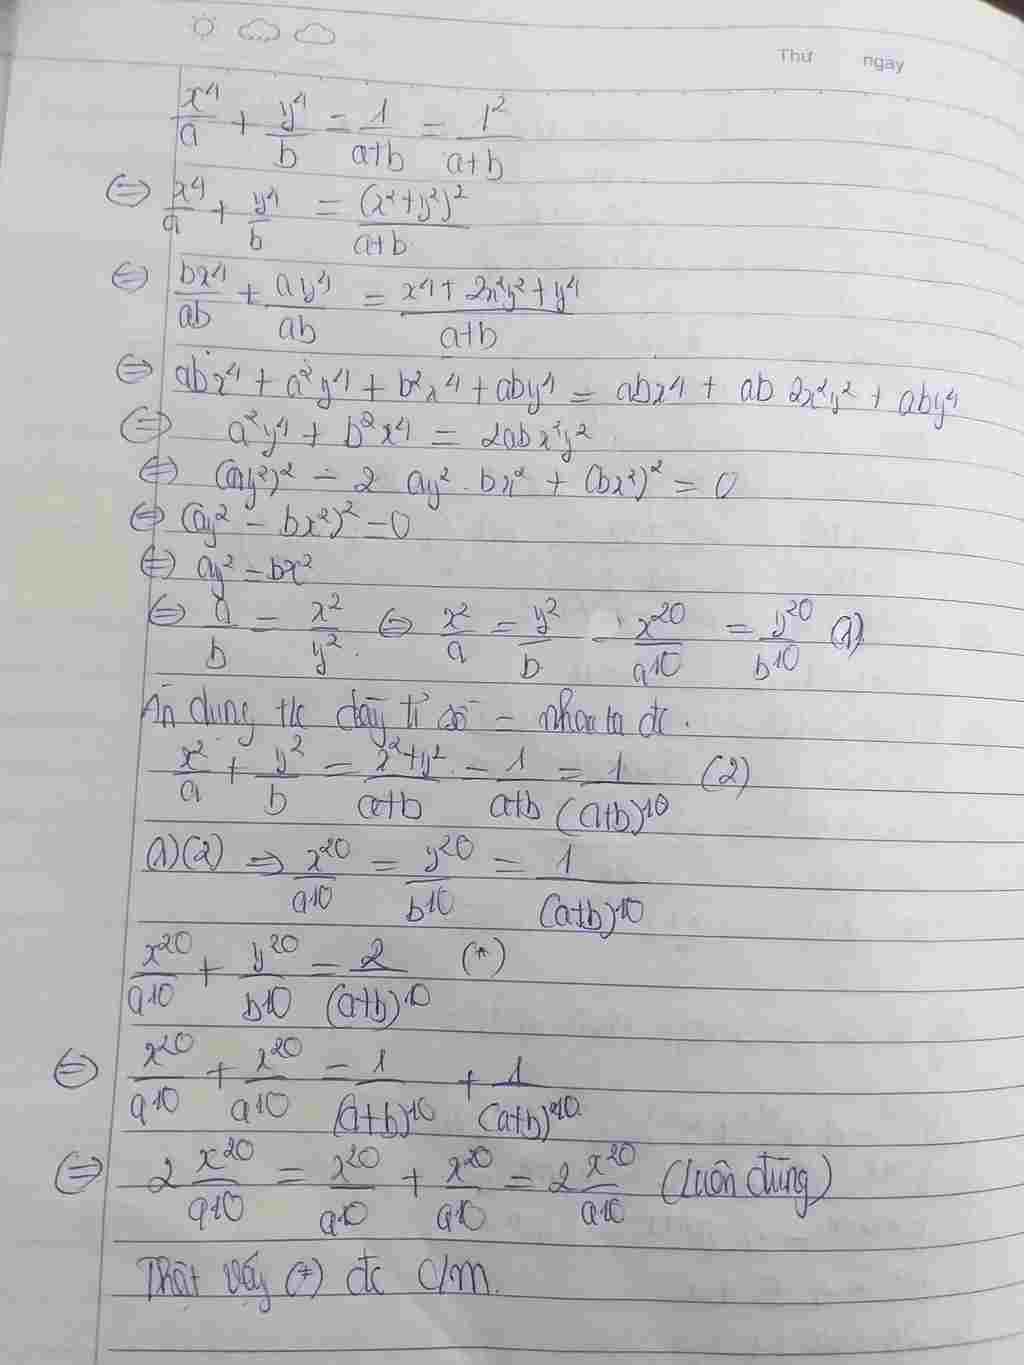 Thứ ngày
x⁴/a + y⁴/b = 1/(a+b) = 1²/(a+b)
⇔ x⁴/a + y⁴/b = (x²+y²)²/(a+b)
⇔ bx⁴/ab + ay⁴/ab = (x⁴ + 2x²y² + y⁴)/(a+b)
⇔ abx⁴ + a²y⁴ + b²x⁴ + aby⁴ = abx⁴ + ab 2x²y² + aby⁴
⇔ a²y⁴ + b²x⁴ = 2abx²y²
⇔ (ay²)² - 2 ay² . bx² + (bx²)² = 0
⇔ (ay² - bx²)² = 0
⇔ ay² = bx²
⇔ a/b = x²/y². ⇔ x²/a = y²/b = x²⁰/a¹⁰ = y²⁰/b¹⁰ (1)
Áp dụng t/c dãy tỉ số = nhau ta đc.
x²/a + y²/b = (x²+y²)/(a+b) = 1/(a+b) = 1/(a+b)¹⁰ (2)
(1)(2) ⇒ x²⁰/a¹⁰ = y²⁰/b¹⁰ = 1/(a+b)¹⁰
x²⁰/a¹⁰ + y²⁰/b¹⁰ = 2/(a+b)¹⁰ (*)
⇔ x²⁰/a¹⁰ + x²⁰/a¹⁰ = 1/(a+b)¹⁰ + 1/(a+b)¹⁰
⇔ 2 x²⁰/a¹⁰ = x²⁰/a¹⁰ + x²⁰/a¹⁰ = 2 x²⁰/a¹⁰ (luôn đúng)
Thật vậy (*) đc c/m.